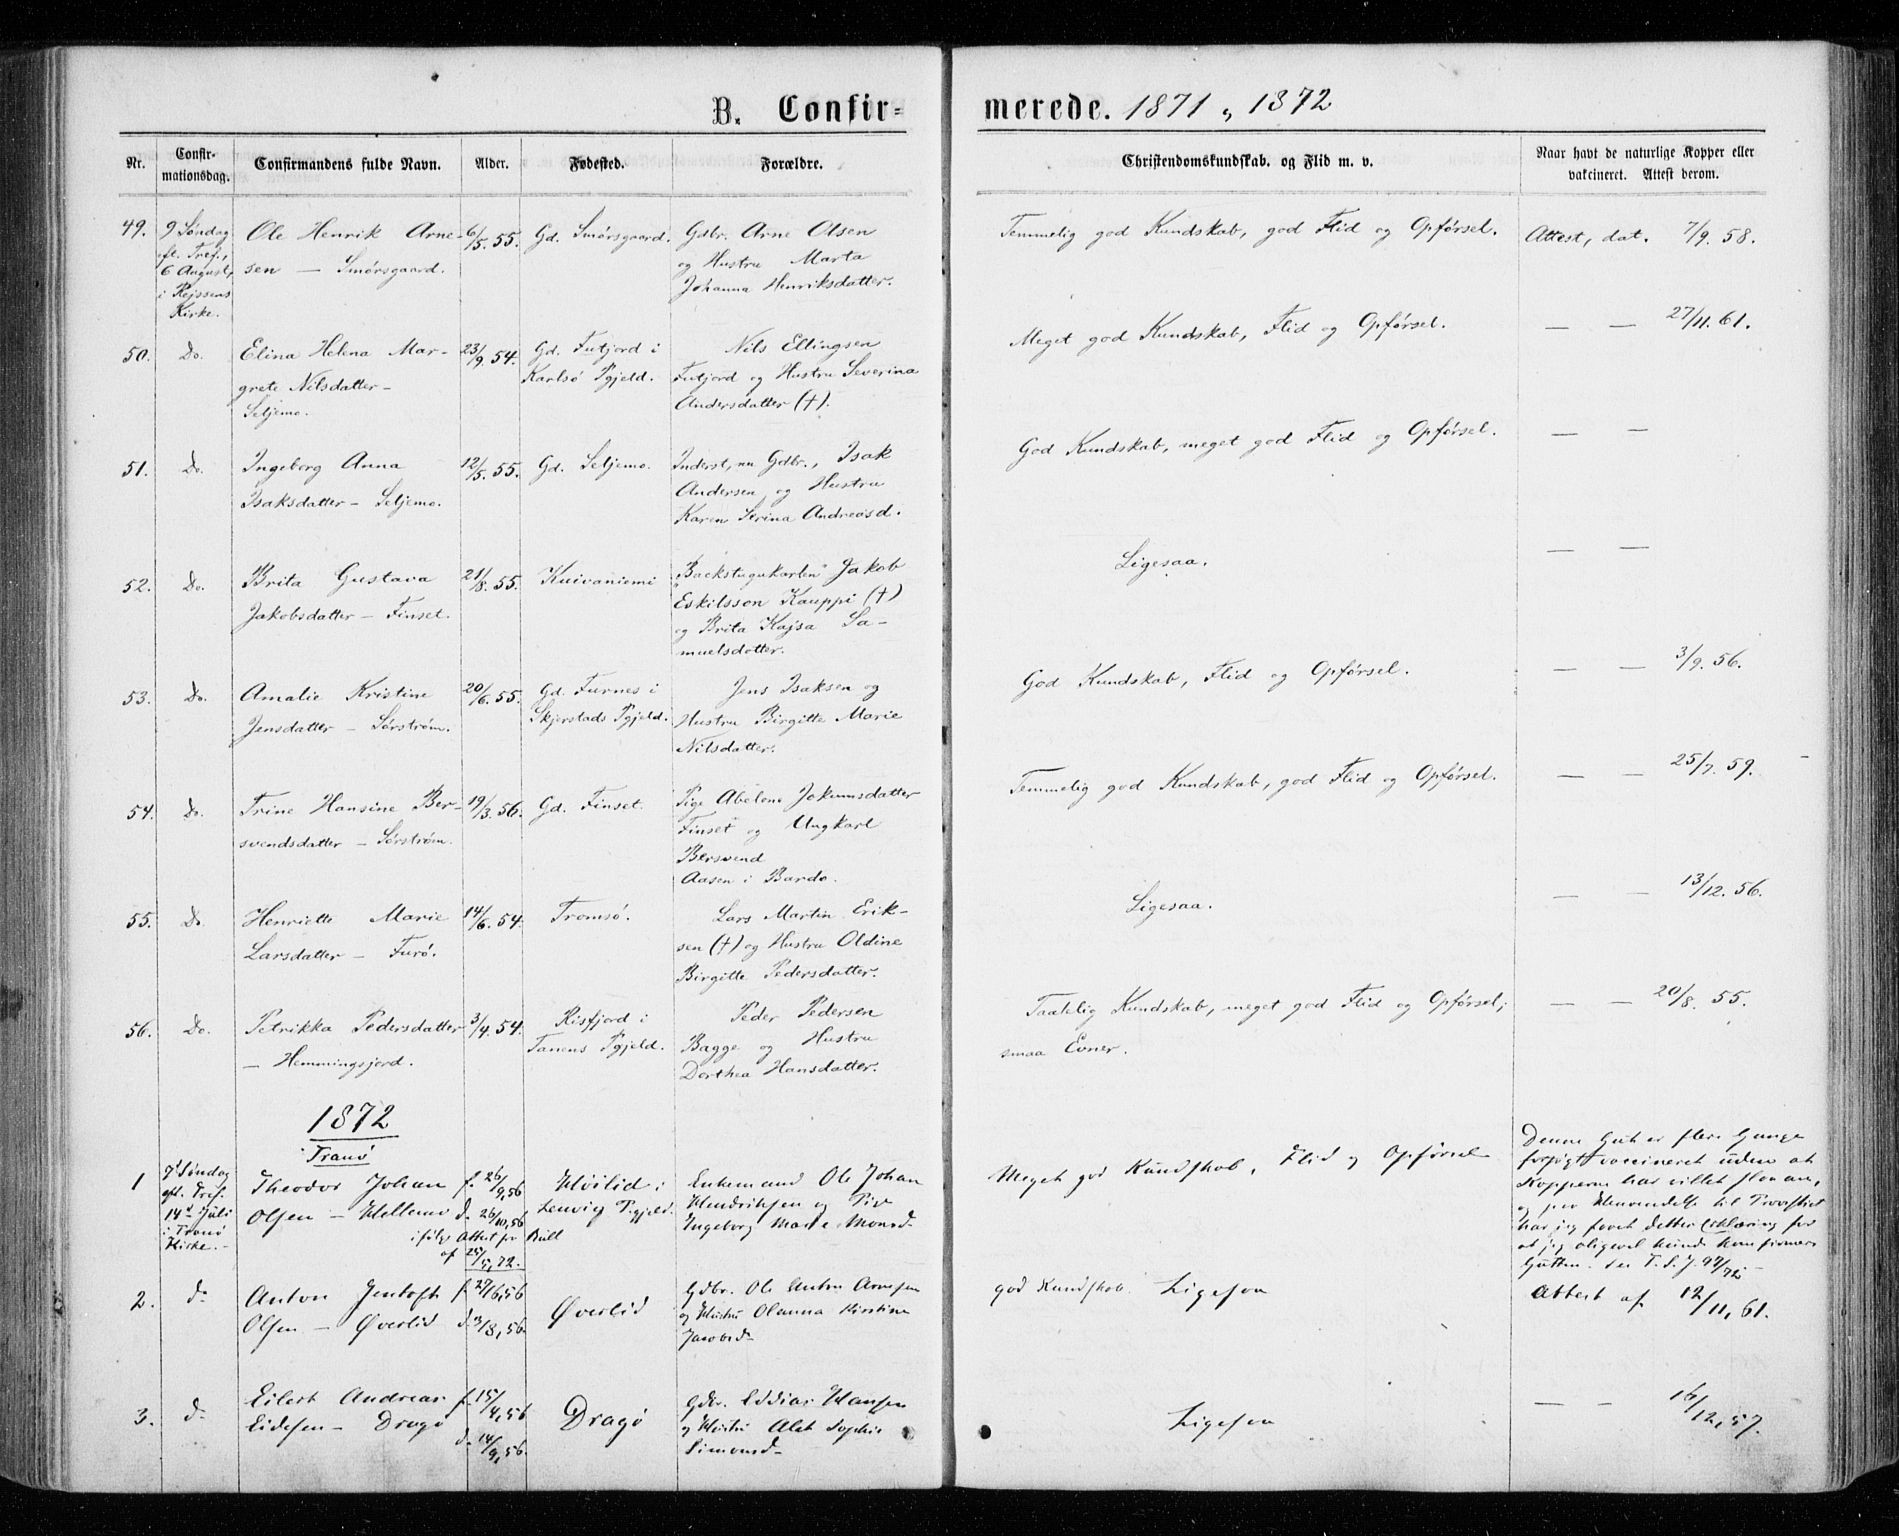 B. Confir=
merede. 1871 „ 1872
Nr.
Confir-
mationsdag.
Confirmandens fulde Navn.
Alder.
Fødested.
Forældre.
Christendomskundskab. og Flid m. v.
Naar havt de naturlige Kopper eller
vakcineret. Attest derom.
49.
9 Søndag
eft. Tref.,
6 August,
i Rejssens
Kirke.
Ole Henrik Arne-
sen — Smørsgaard.
6/5. 55.
Gd. Smørsgaard.
Gdbr. Arne Olsen
og Hustru Marta
Johanna Henriksdatter.
Temmelig god Kundskab, god Flid og Opførsel.
Attest, dat. 7/9. 58.
50.
Do.
Elina Helena Mar-
grete Nilsdatter –
Seljemo.
23/9. 54.
Gd. Futjord i
Karlsø Pgjeld.
Nils Ellingsen
Futjord og Hustru Severina
Andersdatter (†).
Meget god Kundskab, Flid og Opførsel.
— — 27/11. 61.
51.
Do.
Ingeborg Anna
Isaksdatter – Seljemo.
12/5. 55.
Gd. Seljemo.
Inderst, nu Gdbr., Isak
Andersen og Hustru
Karen Serina Andreasd.
God Kundskab, meget god Flid og Opførsel.
— —
52.
Do.
Brita Gustava
Jakobsdatter – Finset.
21/8. 55.
Kuivaniemi
"Backstugukarlen" Jakob
Eskilsson Kauppi (†)
og Brita Kajsa Sa-
muelsdotter.
Ligesaa.
— —
53.
Do.
Amalie Kristine
Jensdatter – Sørstrøm.
20/6. 55.
Gd. Furnes i
Skjerstads Pgjeld.
Jens Isaksen og
Hustru Birgitte Marie
Nilsdatter.
God Kundskab, Flid og Opførsel.
— — 3/9. 56.
54.
Do.
Trine Hansine Ber-
svendsdatter – Sørstrøm.
19/3. 56.
Gd. Finset.
Pige Abelone Jokumsdatter
Finset og Ungkarl
Bersvend
Aasen i Bardo.
Temmelig god Kundskab, god Flid og Opførsel.
— — 25/7. 59.
55.
Do.
Henriette Marie
Larsdatter – Furø.
14/6. 54.
Tromsø.
Lars Martin Erik-
sen (†) og Hustru Oldine
Birgitte Pedersdatter.
Ligesaa.
— — 13/12. 56.
56.
Do.
Petrikka Pedersdatter
– Hemmingsjord.
3/4. 54.
Risfjord i
Tanens Pgjeld.
Peder Pedersen
Bagge og Hustru
Dorthea Hansdatter.
Taalelig Kundskab, meget god Flid og Opførsel;
smaa Evner.
— — 20/8. 55.
1872
Tranø
1
7d Søndag
eft. Tref.
14d Juli
i Tranø
Kirke.
Theodor Johan
Olsen –
f. 26/9, 56
d. 26/10, 56
ifølge Attest fr
af 25/5, 72.
Høilid i
Lenvig Pgjeld.
Enkemand Ole Johan
Hendriksen og Pige
Ingeborg Marie Monsd.
Meget god Kundskab, Flid og Opførsel
Denne Gut er flere Gange
forsøgt vaccineret uden at
Kopperne har villet slaa an,
og per Henvendelse til Provstiet
har jeg faaet detter Erklæring for
at jeg aligevel kunde konfirmere
Gutten. se
2.
do
Anton Jentoft
Olsen – Øverlid
f. 27/6, 56
d. 3/8, 56.
Øverlid
Gdbr. Ole Arnesen
og Hustru Olianna Kirstine
Jacobsd.
god Kundskab. Ligesaa
Attest af 12/11, 61.
3.
do
Eilert Andreas
Eidesen – Dragø
f. 15/4, 56
d. 14/9, 56.
Dragø
Gdbr. Hansen
og Hustru Alet Sophie
Simonsd.
Ligesaa
— — 16/12, 57.